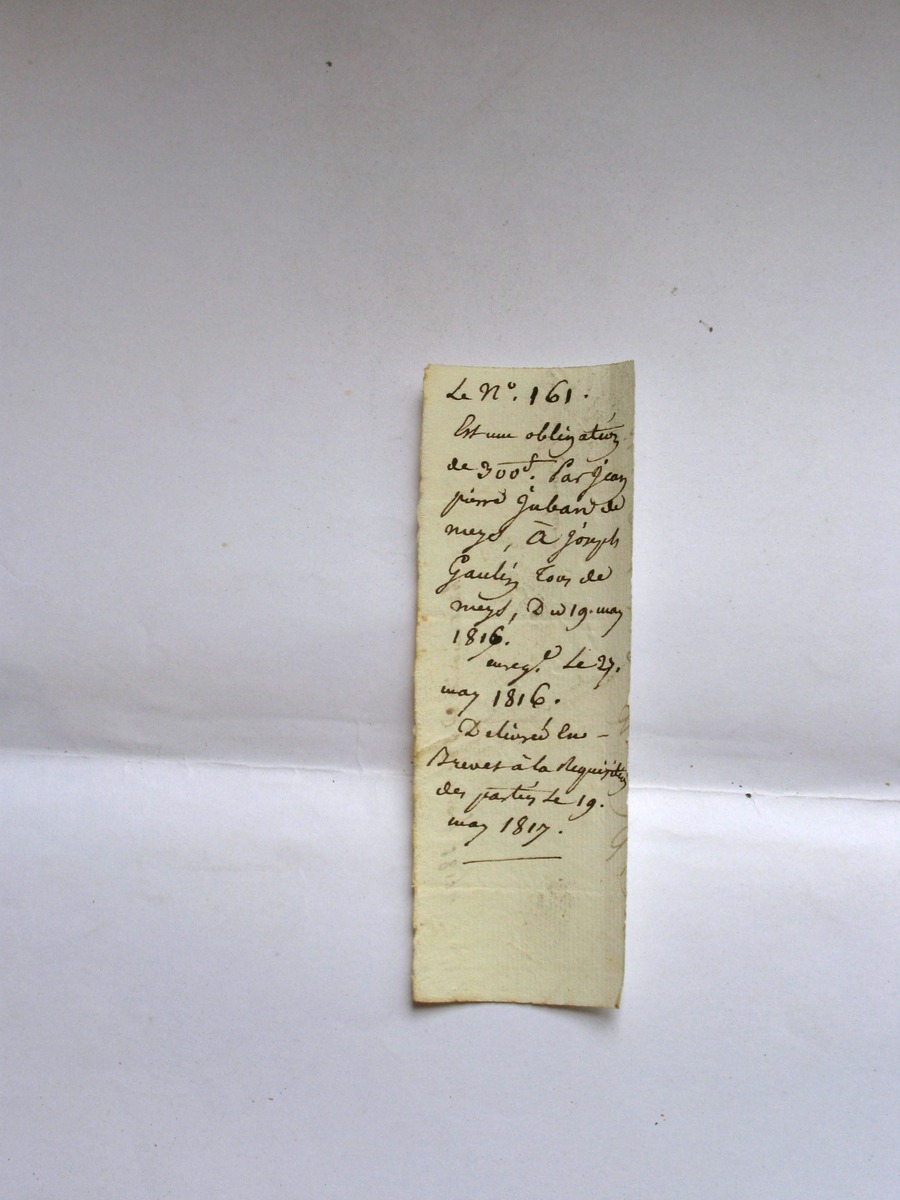 Le N.º 161.
Est une obligation
de 300 f. Par Jean
pierre Jubard de
meys, à joseph
Gaulin Tous de
meys, Du 19. may
1816.
enreg.é Le 27.
may 1816.
Delivré En -
Brevet à la Requisition
des parties Le 19.
may 1817.